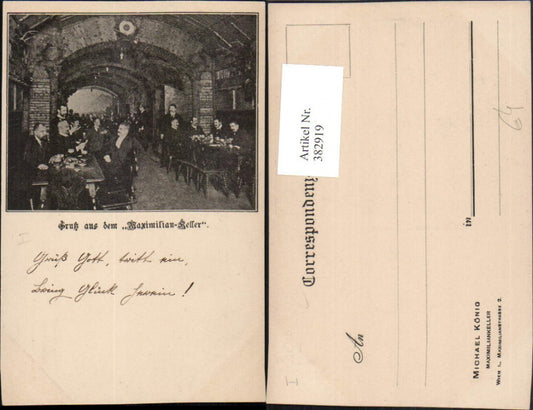 Gruß aus dem „Maximilian-Keller".
I
Grüß Gott, tritt ein,
Bring Glück herein!
Artikel Nr.
382919
Correspondenz
An
in
64
I
MICHAEL KÖNIG
MAXIMILIANKELLER
WIEN I., MAXIMILIANSTRASSE 2.